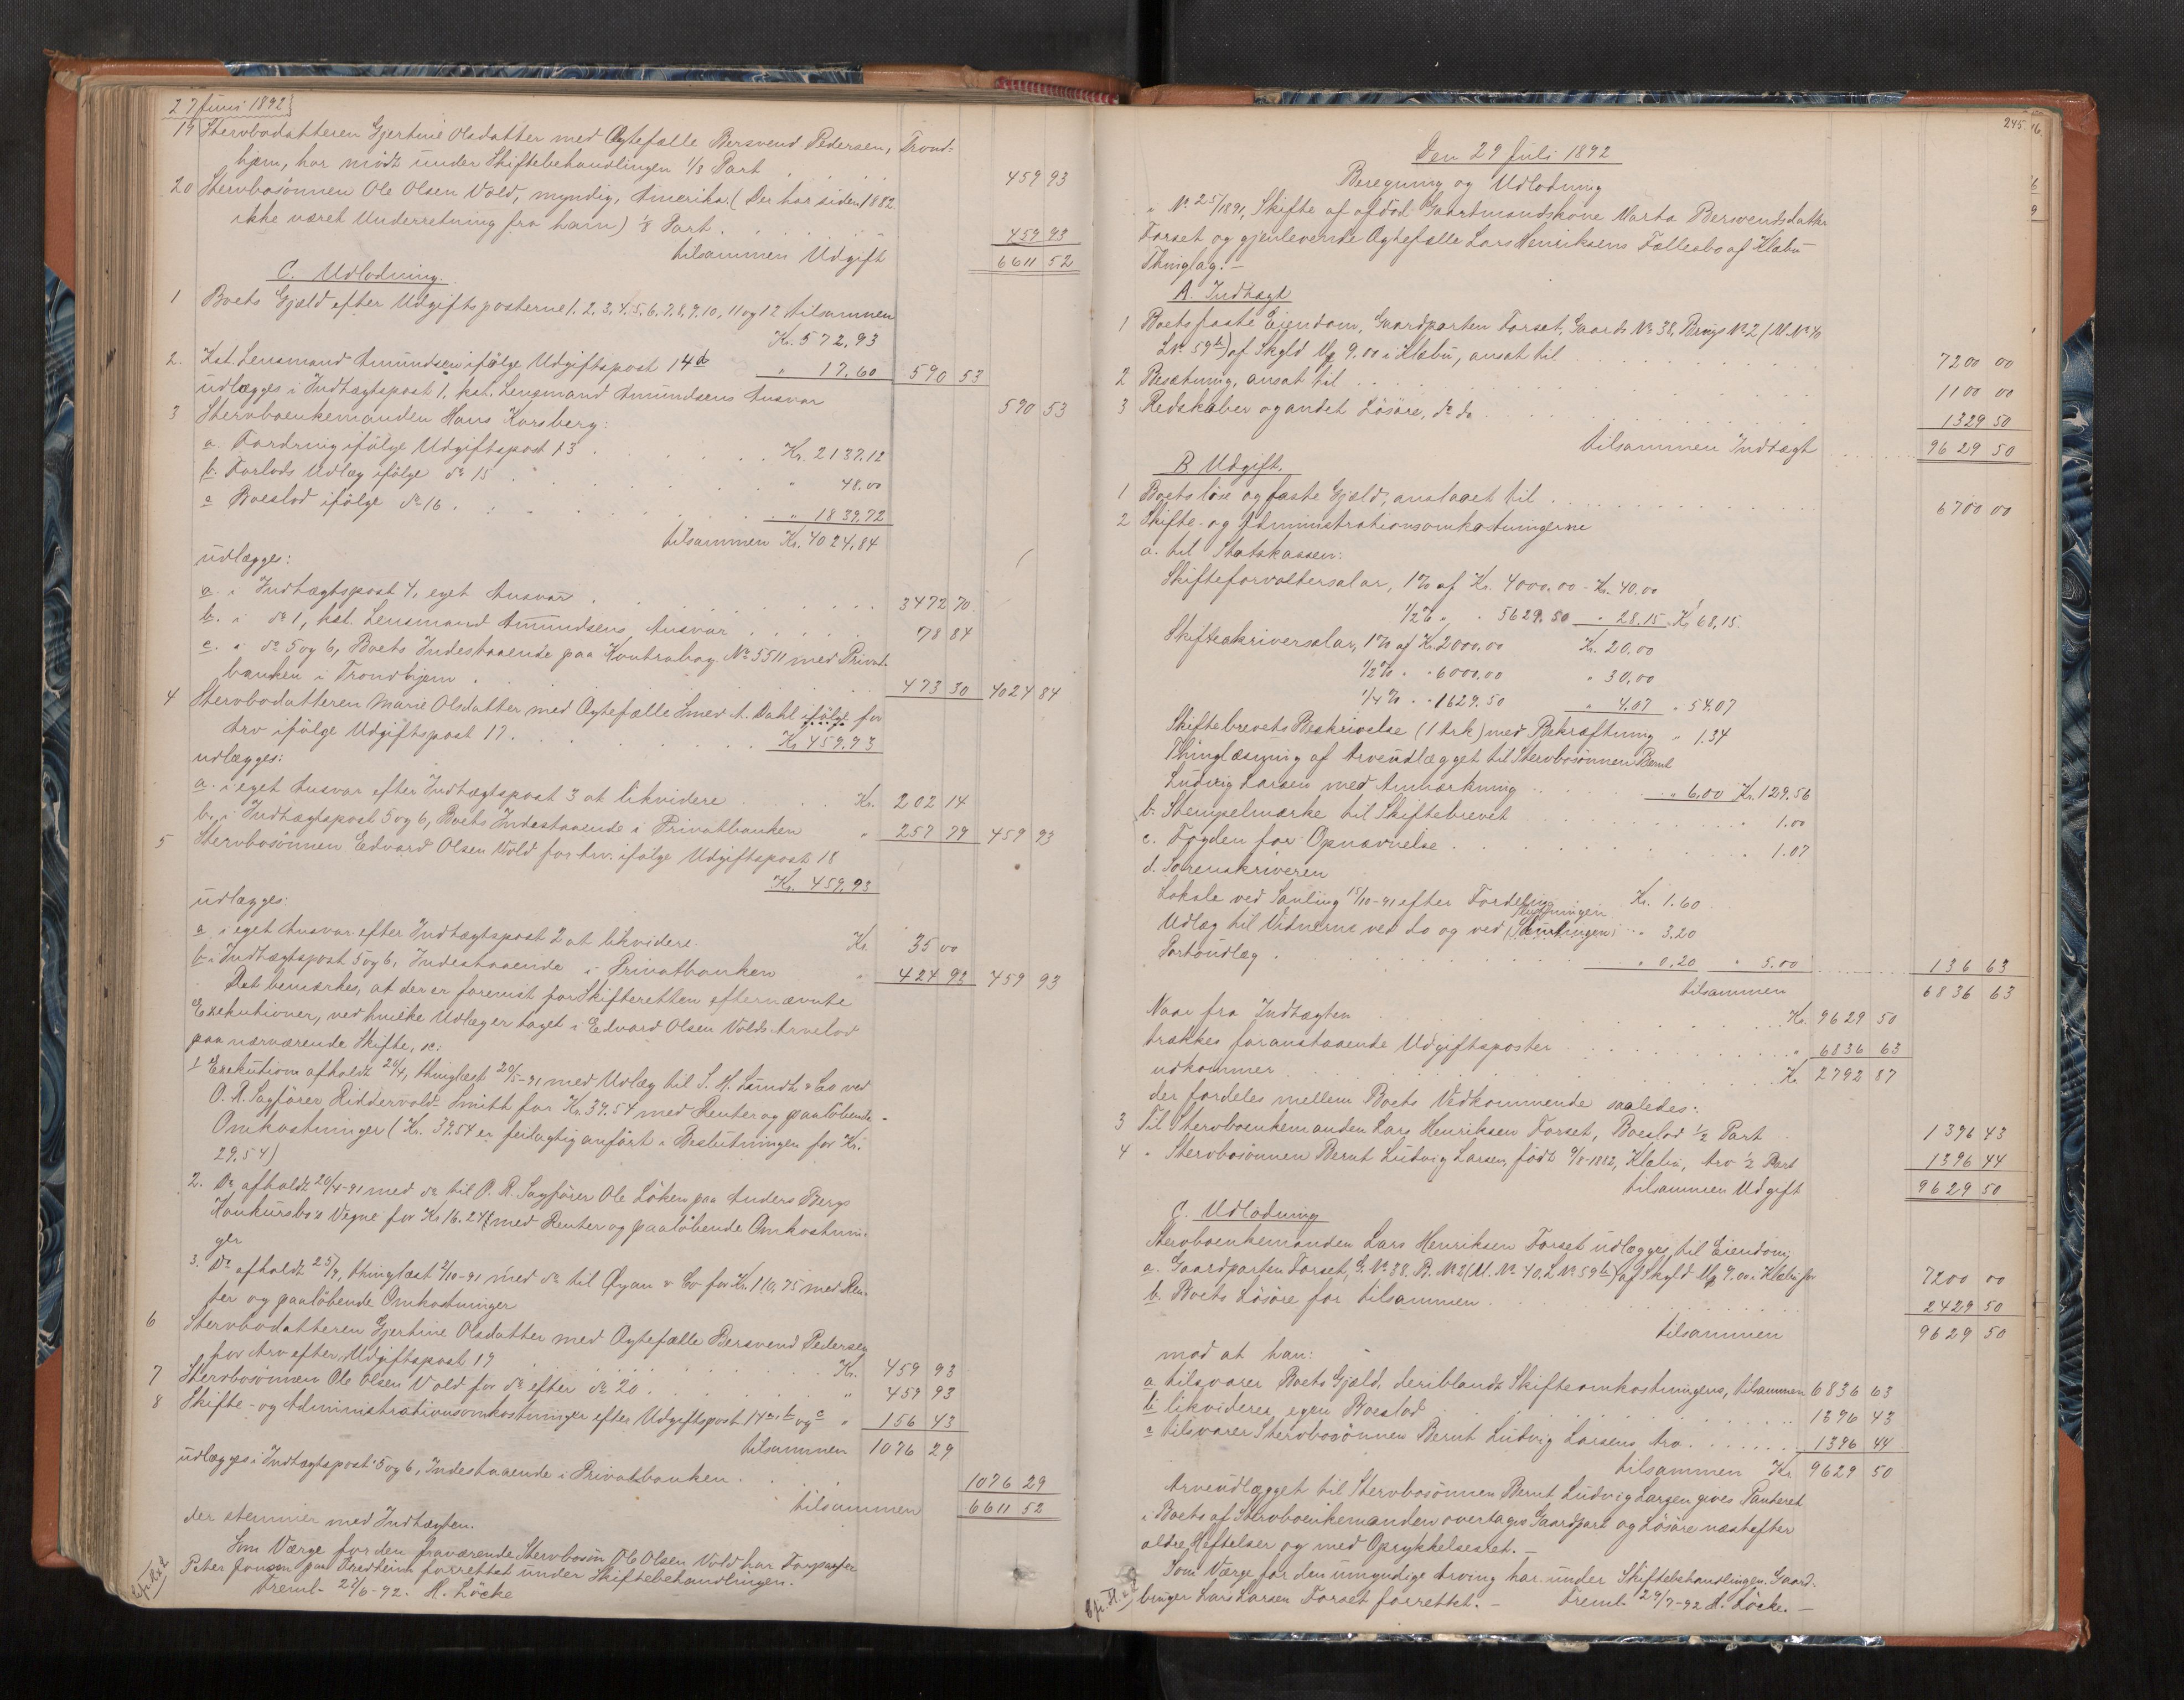 27 Juni 1892
19 Stervbodatteren Gjertine Olsdatter med Ægtefælle Bersvend Pedersen, Trond-
hjem, har mødt under Skiftebehandlingen 1/8 Part . . . . 459 93
20 Stervbosønnen Ole Olsen Vold, myndig, Amerika (Der har siden 1882
ikke været Underretning fra ham) 1/8 Part . . . . 459 93
tilsammen Udgift 6611 52
C. Udlodning.
1 Boets Gjæld efter Udgiftsposterne 1. 2. 3. 4. 5. 6. 7. 8. 9. 10, 11 og 12 tilsammen
Kr. 572,93
2. Kst. Lensmand Amundsen ifølge Udgiftspost 14d " 17.60 590 53
udlægges i Indtægtspost 1, kst. Lensmand Amundsens Ansvar 590 53
3 Stervboenkemanden Hans Korsberg:
a. Fordring ifølge Udgiftspost 13 . . . . Kr. 2137.12
b. Forlods Udlæg ifølge do 15 . . . . " 48.00
c Boeslod ifølge do 16 . . . . " 1839,72
tilsammen Kr. 4024,84
udlægges:
a. i Indtægtspost 4, eget Ansvar . . . . 3472 70
b. i do 1, kst. Lensmand Amundsens Ansvar . . . . 78 84
c. " do 5 og 6, Boets Indestaaende paa Kontrabog No 5511 med Privat-
banken i Trondhjem . . . . 473 30 4024 84
4 Stervbodatteren Marie Olsdatter med Ægtefælle Smed A. Dahl ifølge for
Arv ifølge Udgiftspost 17. . . . . Kr 459.93
udlægges:
a. i eget Ansvar efter Indtægtspost 3 at likvidere . . Kr. 202 14
b. i Indtægtspost 5 og 6, Boets Indestaaende i Privatbanken " 257 79 459 93
5 Stervbosønnen Edvard Olsen Vold for Arv ifølge Udgiftspost 18
Kr. 459,93
udlægges:
a i eget Ansvar efter Indtægtspost 2 at likvidere. Kr. 35 00
b i Indtægtspost 5 og 6, Indestaaende i Privatbanken " 424 93 459 93
Det bemærkes, at der er foremist for Skifteretten efternævnte
Exekutioner, ved hvilke Udlæg er taget i Edvard Olsen Volds Arvelod
paa nærværende Skifte, sc:
1 Exekution afholdt 20/4, thinglæst 20/5-91 med Udlæg til S. H. Lundt & Co ved
O. R. Sagfører Riddervold Smith for Kr. 39.54 med Renter og paaløbende
Omkostninger (Kr. 39.54 er feilagtig anført i Beslutningen for Kr.
29.54)
2. Do afholdt 20/4-91 med do til O. R. Sagfører Ole Løken paa Anders Bergs
Konkursbo's Vegne for Kr 16.24 med Renter og paaløbende Omkostnin-
ger
3. Do afholdt 25/9, thinglæst 2/10-91 med do til Øyan & Co for Kr. 110,75 med Ren-
ter og paaløbende Omkostninger
6 Stervbodatteren Gjertine Olsdatter med Ægtefælle Bersvend Pedersen
for Arv efter Udgiftspost 19 . . . . Kr. 459 93
7 Stervbosønnen Ole Olsen Vold for do efter do 20 . . . . " 459 93
8 Skifte- og Administrationsomkostninger efter Udgiftspost 14 a, b og c " 156 43
tilsammen 1076 29
udlægges i Indtægtspost 5 og 6, Indestaaende i Privatbanken . . . 1076 29
tilsammen 6611 52
der stemmer med Indtægten.
Som Værge for den fraværende Stervbosøn Ole Olsen Vold har
Peter Jonsen paa forrettet under Skiftebehandlingen.
Tremb 27/6-92. H. Löcke
245.
Den 29 Juli 1892
Beregning og Udlodning
" No 25/1891, Skifte af afdød Gaardmandskone Marta Bersvendsdatter
Forset og gjenlevende Ægtefælle Lars Henriksens Fællesbo af Klæbu
Thinglag.-
A. Indtægt
1 Boets faste Eiendom, Gaardparten Forset, Gaards No 38, Brugs No 2 (M. No 40
L No 59b) af Skyld Mk 9.00 i Klæbu, ansat til . . . . 7200 00
2 Besætning, ansat til . . . . 1100 00
3 Redskaber og andet Løsøre, do do . . . . 1329 50
tilsammen Indtægt . . . . 9629 50
B. Udgift.
1 Boets løse og faste Gjæld, anslaaet til . . . . 6700 00
2 Skifte- og Administrationsomkostningerne
a. til Statskassen:
Skifteforvaltersalar, 1% af Kr. 4000.00 - Kr. 40.00
1/2% " " 5629.50 " 28.15 Kr 68,15.
Skifteskriversalar, 1% af Kr. 2000.00 Kr. 20.00
1/2% " " 6000,00 " 30,00
1/4% " " 1629.50 " 4.07 " 54.07
Skiftebrevets Beskrivelse (1 Ark) med Bekræftning " 1.34
Thinglæsning af Arveudlægget til Stervbosønnen Bernt
Ludvig Larsen med Anmærkning . . . . " 6.00 Kr. 129.56
b. Stempelmærke til Skiftebrevet . . . . 1.00
c. Fogden for Opnævnelse . . . . " 1.07
d. Sorenskriveren
Lokale ved Samling 15/10-91 efter Fordeling Kr. 1.60
Udlæg til Vidnerne ved do og ved Slutningen " 3.20
Portoudlæg . . . . " 0,20 " 5.00 . . . . 136 63
tilsammen 6836 63
Naar fra Indtægten . . . . Kr. 9629 50
trækkes foranstaaende Udgiftsposter . . . . " 6836 63
udkommer . . . . Kr. 2792 87
der fordeles mellem Boets Vedkommende saaledes:
3 Til Stervboenkemanden Lars Henriksen Forset, Boeslod 1/2 Part 1396 43
4 " Stervbosønnen Bernt Ludvig Larsen, født 9/8-1882, Klæbu, Arv 1/2 Part 1396 44
tilsammen Udgift 9629 50
C. Udlodning
Stervboenkemanden Lars Henriksen Forset udlægges til Eiendom;
a. Gaardparten Forset, G. No 38. B. No 2 (M. No 40. L No 59b) af Skyld Mk 9.00 i Klæbu for 7200 00
b. Boets Løsøre for tilsammen . . . . 2429 50
tilsammen 9629 50
mod at han:
a tilsvarer Boets Gjæld, deriblandt Skifteomkostningerne, tilsammen 6836 63
b likviderer egen Boeslod . . . . 1396 43
c tilsvarer Stervbosønnen Bernt Ludvig Larsens Arv . . . . 1396 44
tilsammen Kr 9629 50
Arveudlægget til Stervbosønnen Bernt Ludvig Larsen gives Panteret
i Boets af Stervboenkemanden overtagne Gaardpart og Løsøre næstefter
ældre Heftelser og med Oprykkelsesret.-
Som Værge for den umyndige Arving har under Skiftebehandlingen Gaard-
bruger Lars Larsen Forset forrettet.- Tremb 29/7-92 H. Löcke.-